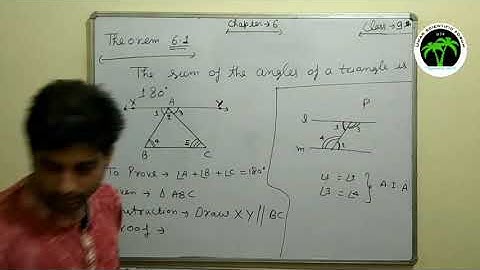 Chapter → 6
Class → 9th
Theorem 6.1
The sum of the angles of a triangle is
180°
X A Y
1 2 3
4 5
B C
To Prove → ∠A + ∠B + ∠C = 180°
→ Δ ABC
→ Draw XY || BC
→
P
l
1 3
4 2
m
∠1 = ∠2
∠3 = ∠4
A.I.A